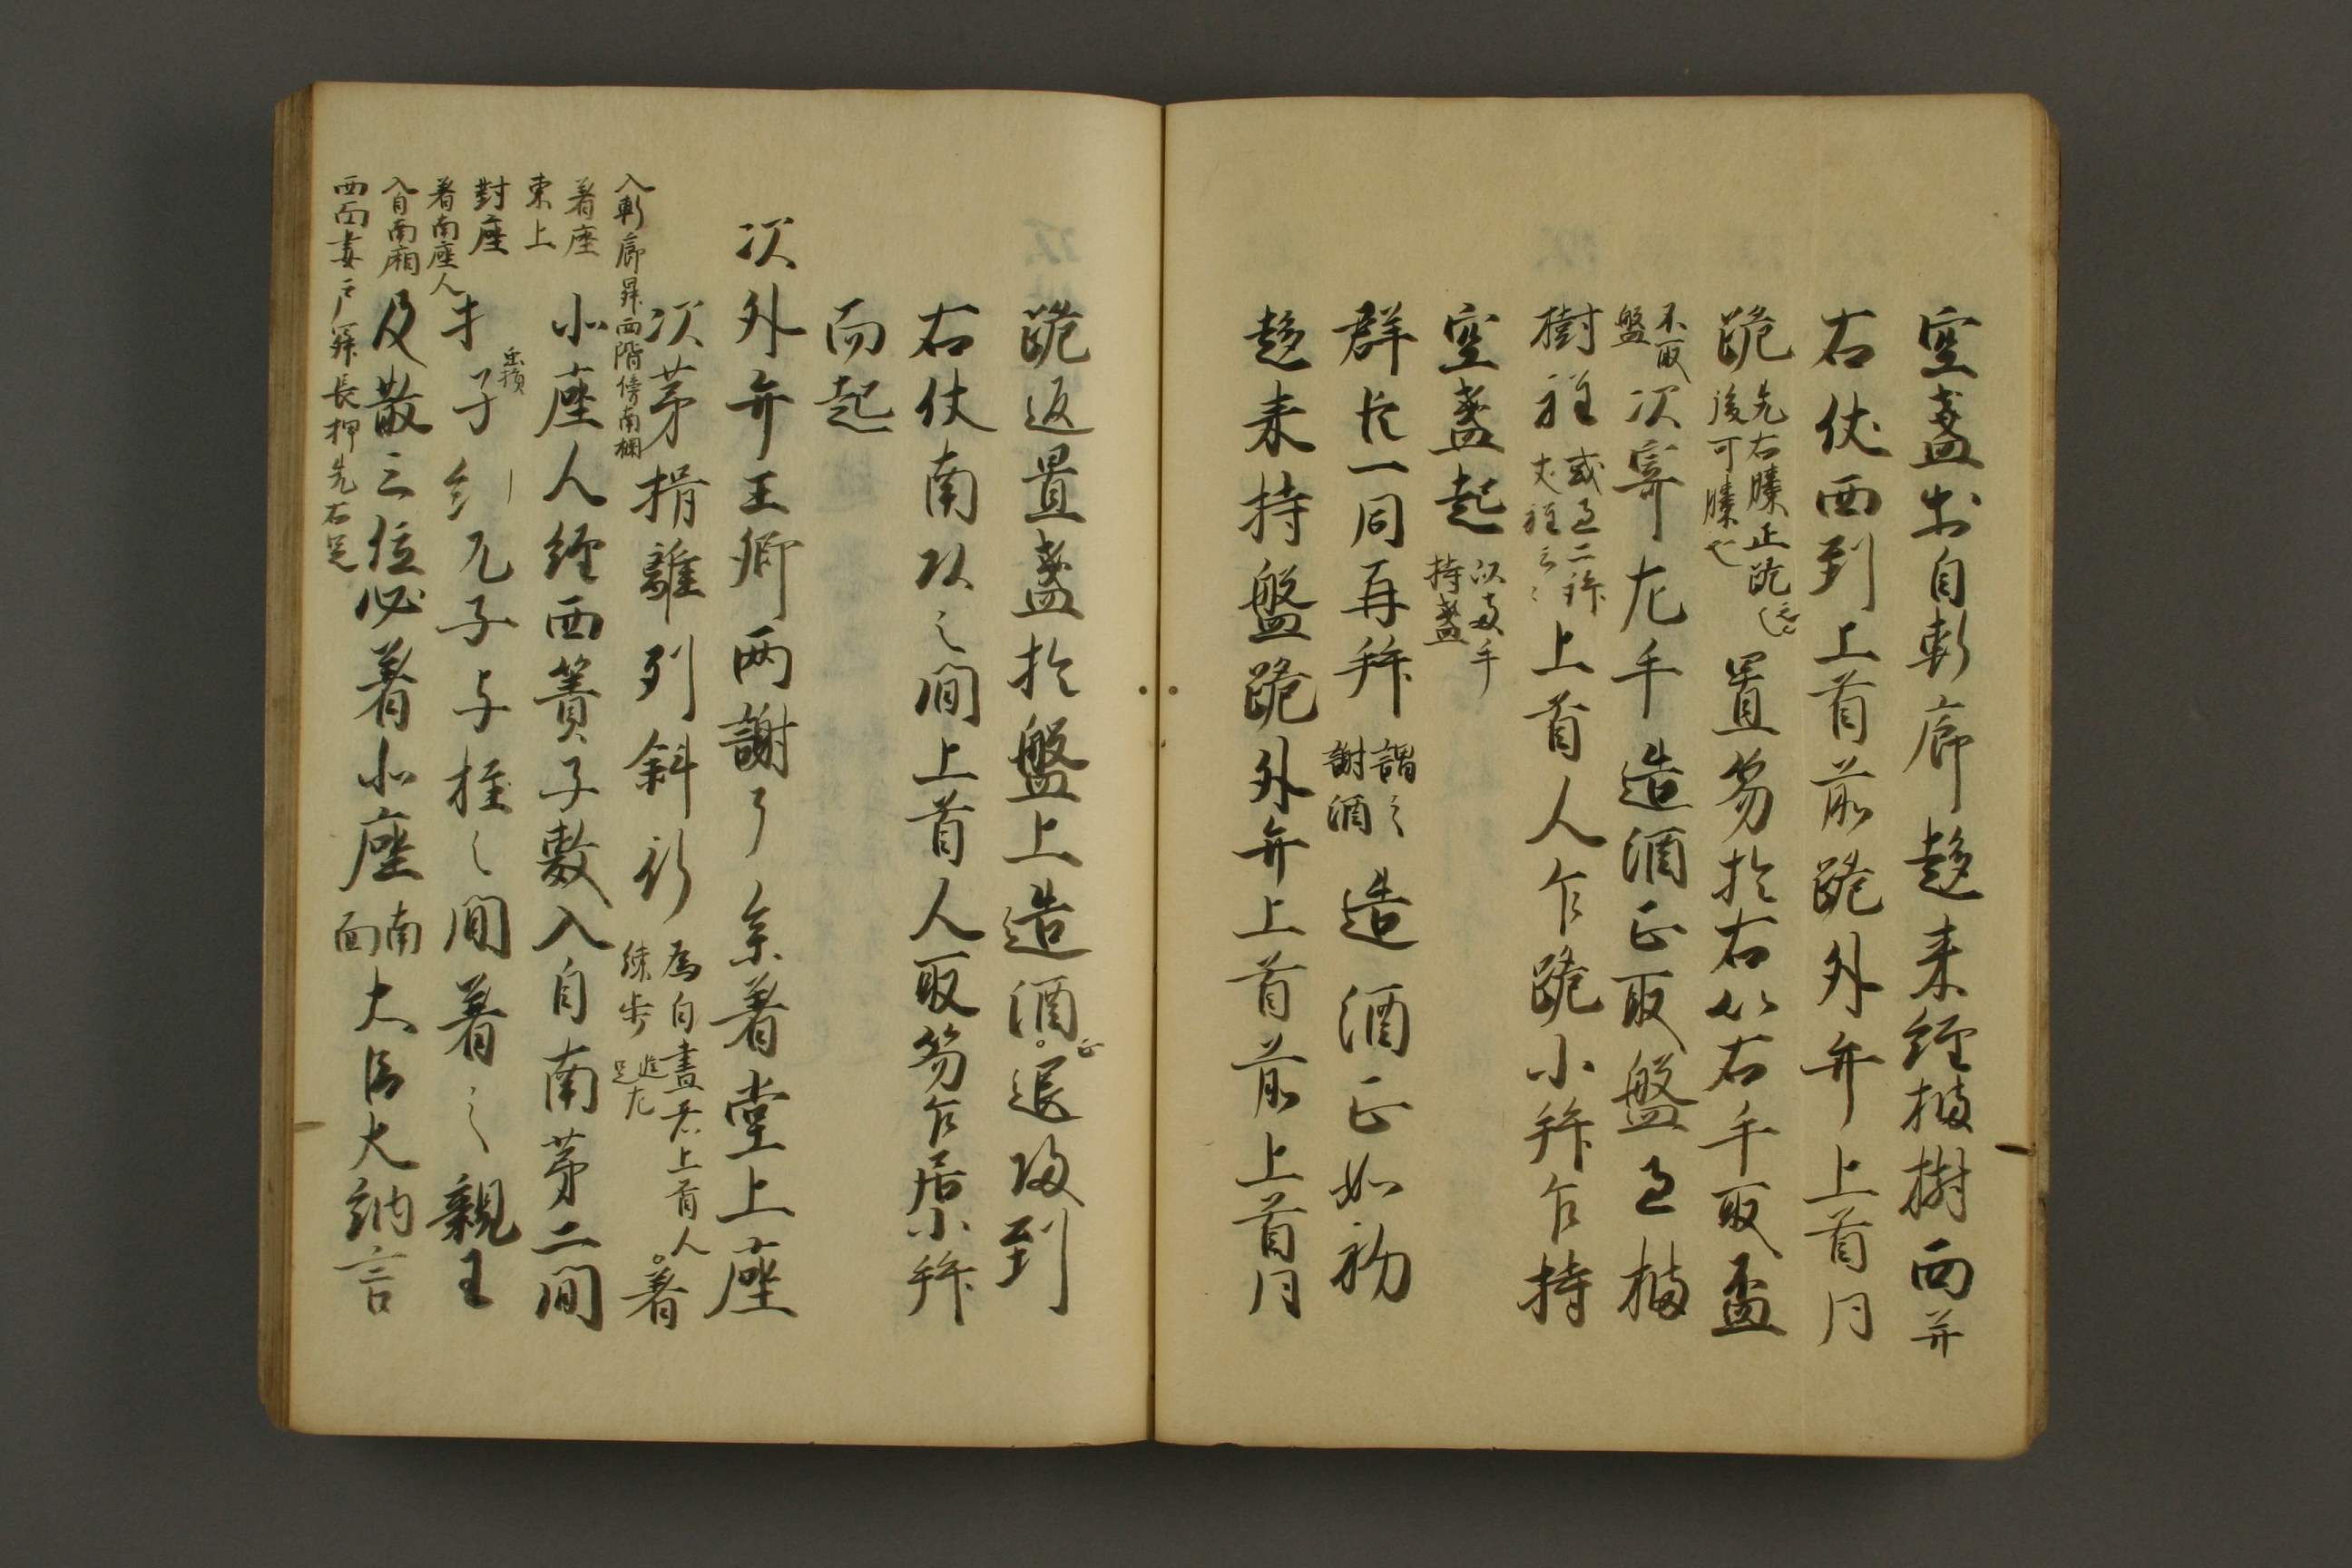 空盞出自軒廊趍来経橘樹西并
右仗西到上首前跪外弁上首同
跪先右膝正跪後可膝也置笏於右以右手取盃
不取盤次寄左手造酒正取盤過橘
樹程或過二許丈程云々上首人乍跪小拝乍持
空盞起以両手持盞
群臣一同再拝謂之謝酒造酒正如初
趍来持盤跪外弁上首前上首同
跪返置盞於盤上造酒正退帰到
右仗南頭之間上首人取笏乍居小拝
而起
次外弁王卿両謝了参着堂上座
次第揖離列斜行為自晝共上首人練歩進左足着
入軒廊昇西階傍南欄
北座人経西簀子敷入自南第二間
着座
東上
対座
着南座人
入自南廂
西面妻戸昇長押先右足
及散三位必着北座南面大臣大納言
兀子与柱之間着之親王